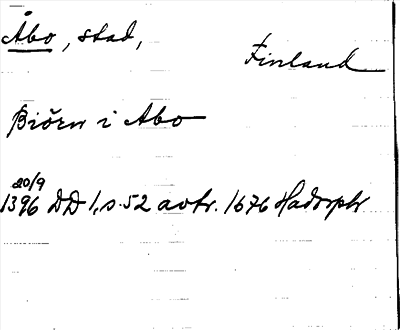 Åbo, stad,
Finland
Biörn i Abo
20/9
1396 DD 1, s. 52 avtr. 1676 Hadorph